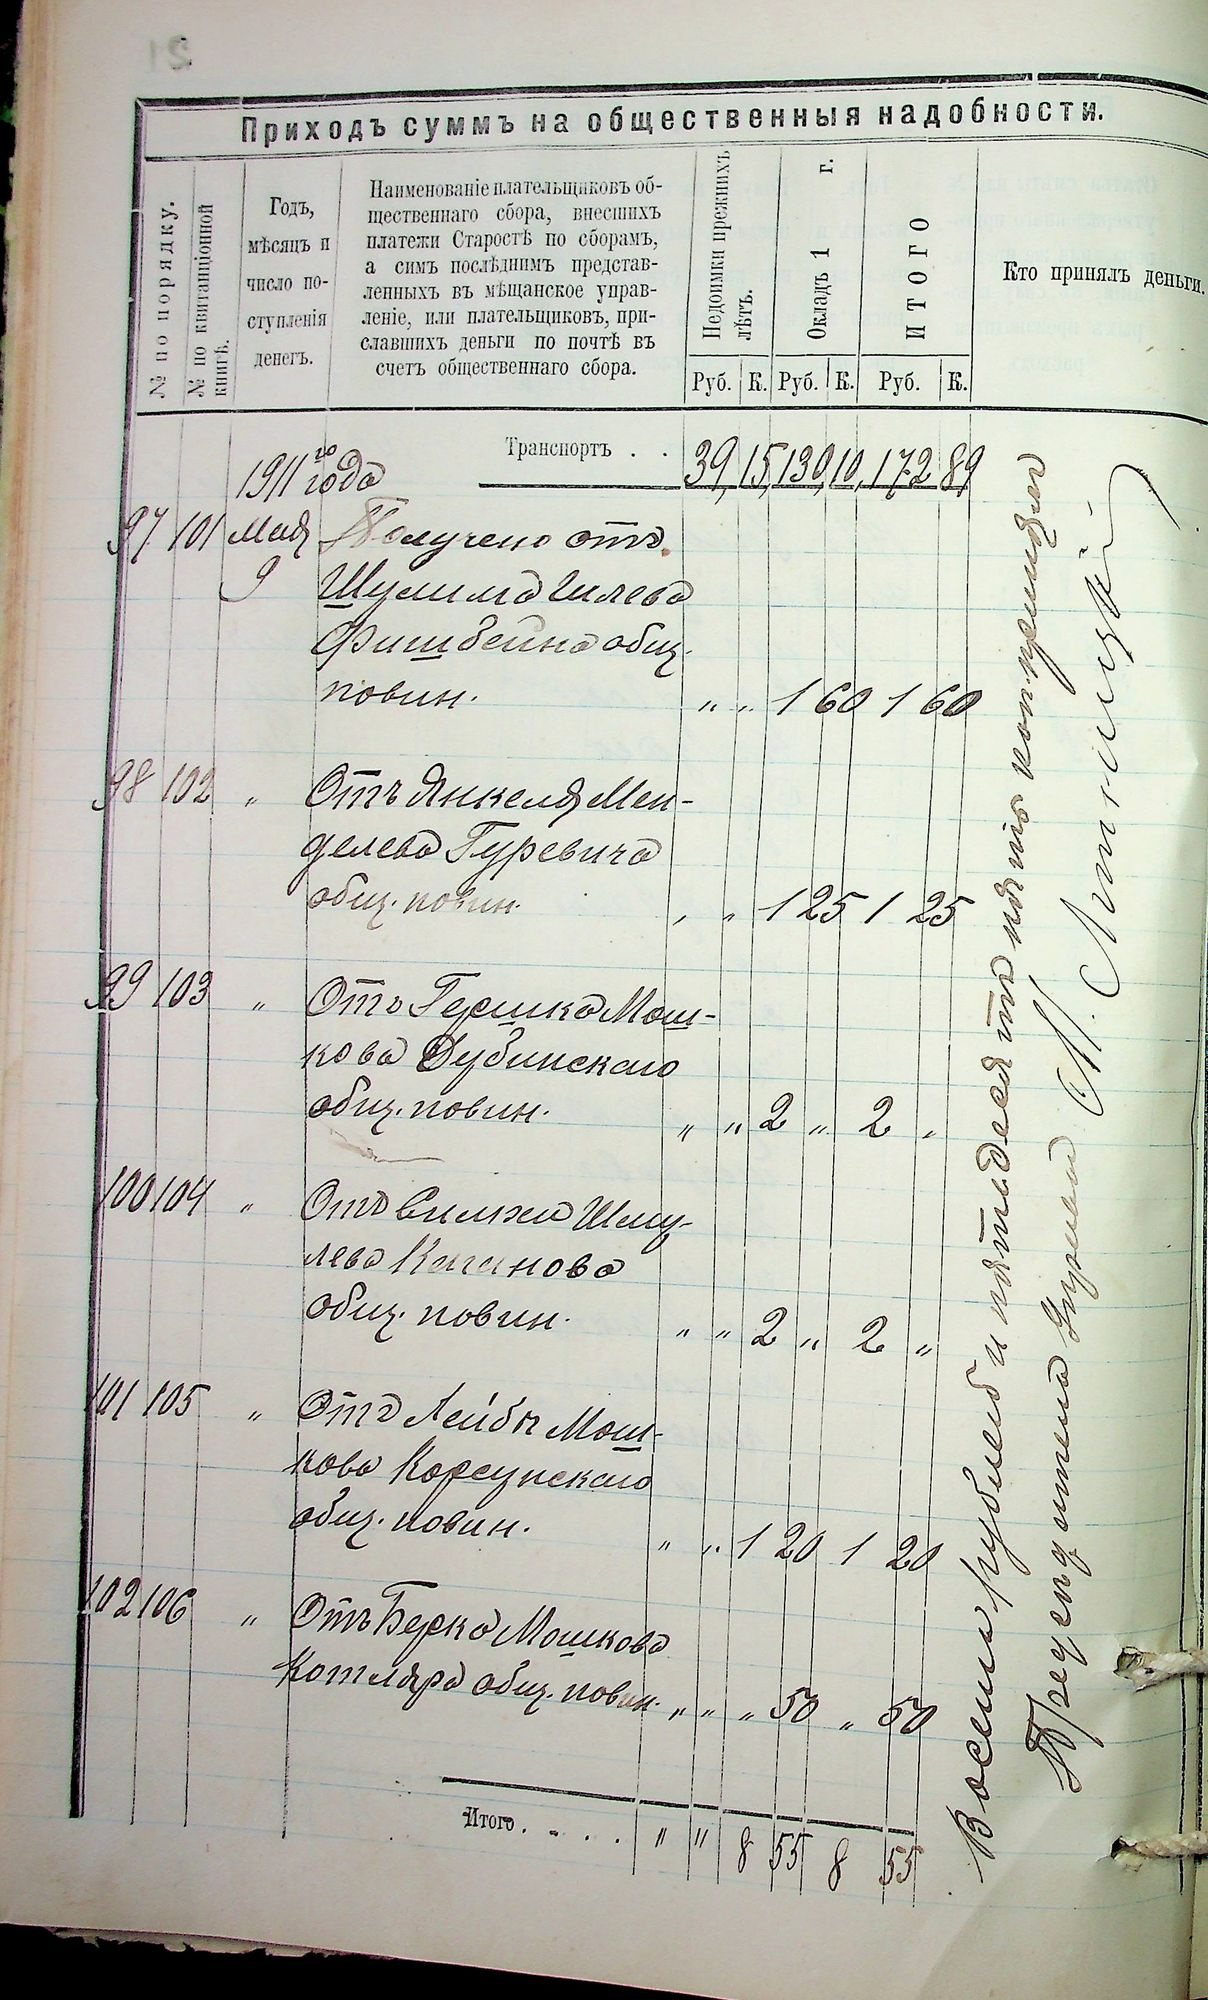 Приходъ суммъ на общественныя надобности.
№ по порядку.
№ по квитанціонной
книгѣ.
Годъ,
мѣсяцъ и
число по-
ступленія
денегъ.
Наименованіе плательщиковъ об-
щественнаго сбора, внесшихъ
платежи Старостѣ по сборамъ,
а симъ послѣднимъ представ-
ленныхъ въ мѣщанское управ-
леніе, или плательщиковъ, при-
славшихъ деньги по почтѣ въ
счетъ общественнаго сбора.
Недоимки прежнихъ
лѣтъ.
Окладъ 1 г.
ИТОГО
Кто принялъ деньги.
Руб. К. Руб. К. Руб. К.
Транспортъ . . 39 15 130 10 172 89
1911 го года
97 101 Мая Получено отъ
9 Шулима Илева
Фишбейна общ.
повин. „ „ 1 60 1 60
98 102 „ Отъ Янкеля Мен-
делева Гуревича
общ. повин. „ „ 1 25 1 25
99 103 „ Отъ Гершка Мош-
кова Дубинскаго
общ. повин. „ „ 2 „ 2 „
100 104 „ Отъ Симхи Шму-
лева Каганова
общ. повин. „ „ 2 „ 2 „
101 105 „ Отъ Лейбы Мош-
кова Корсунскаго
общ. повин. „ „ 1 20 1 20
102 106 „ Отъ Берка Мошкова
Котляра общ. повин. „ „ „ 50 „ 50
Итого . . . . „ „ 8 55 8 55
Восемь рублей и пятьдесятъ пять коп. принялъ
М.